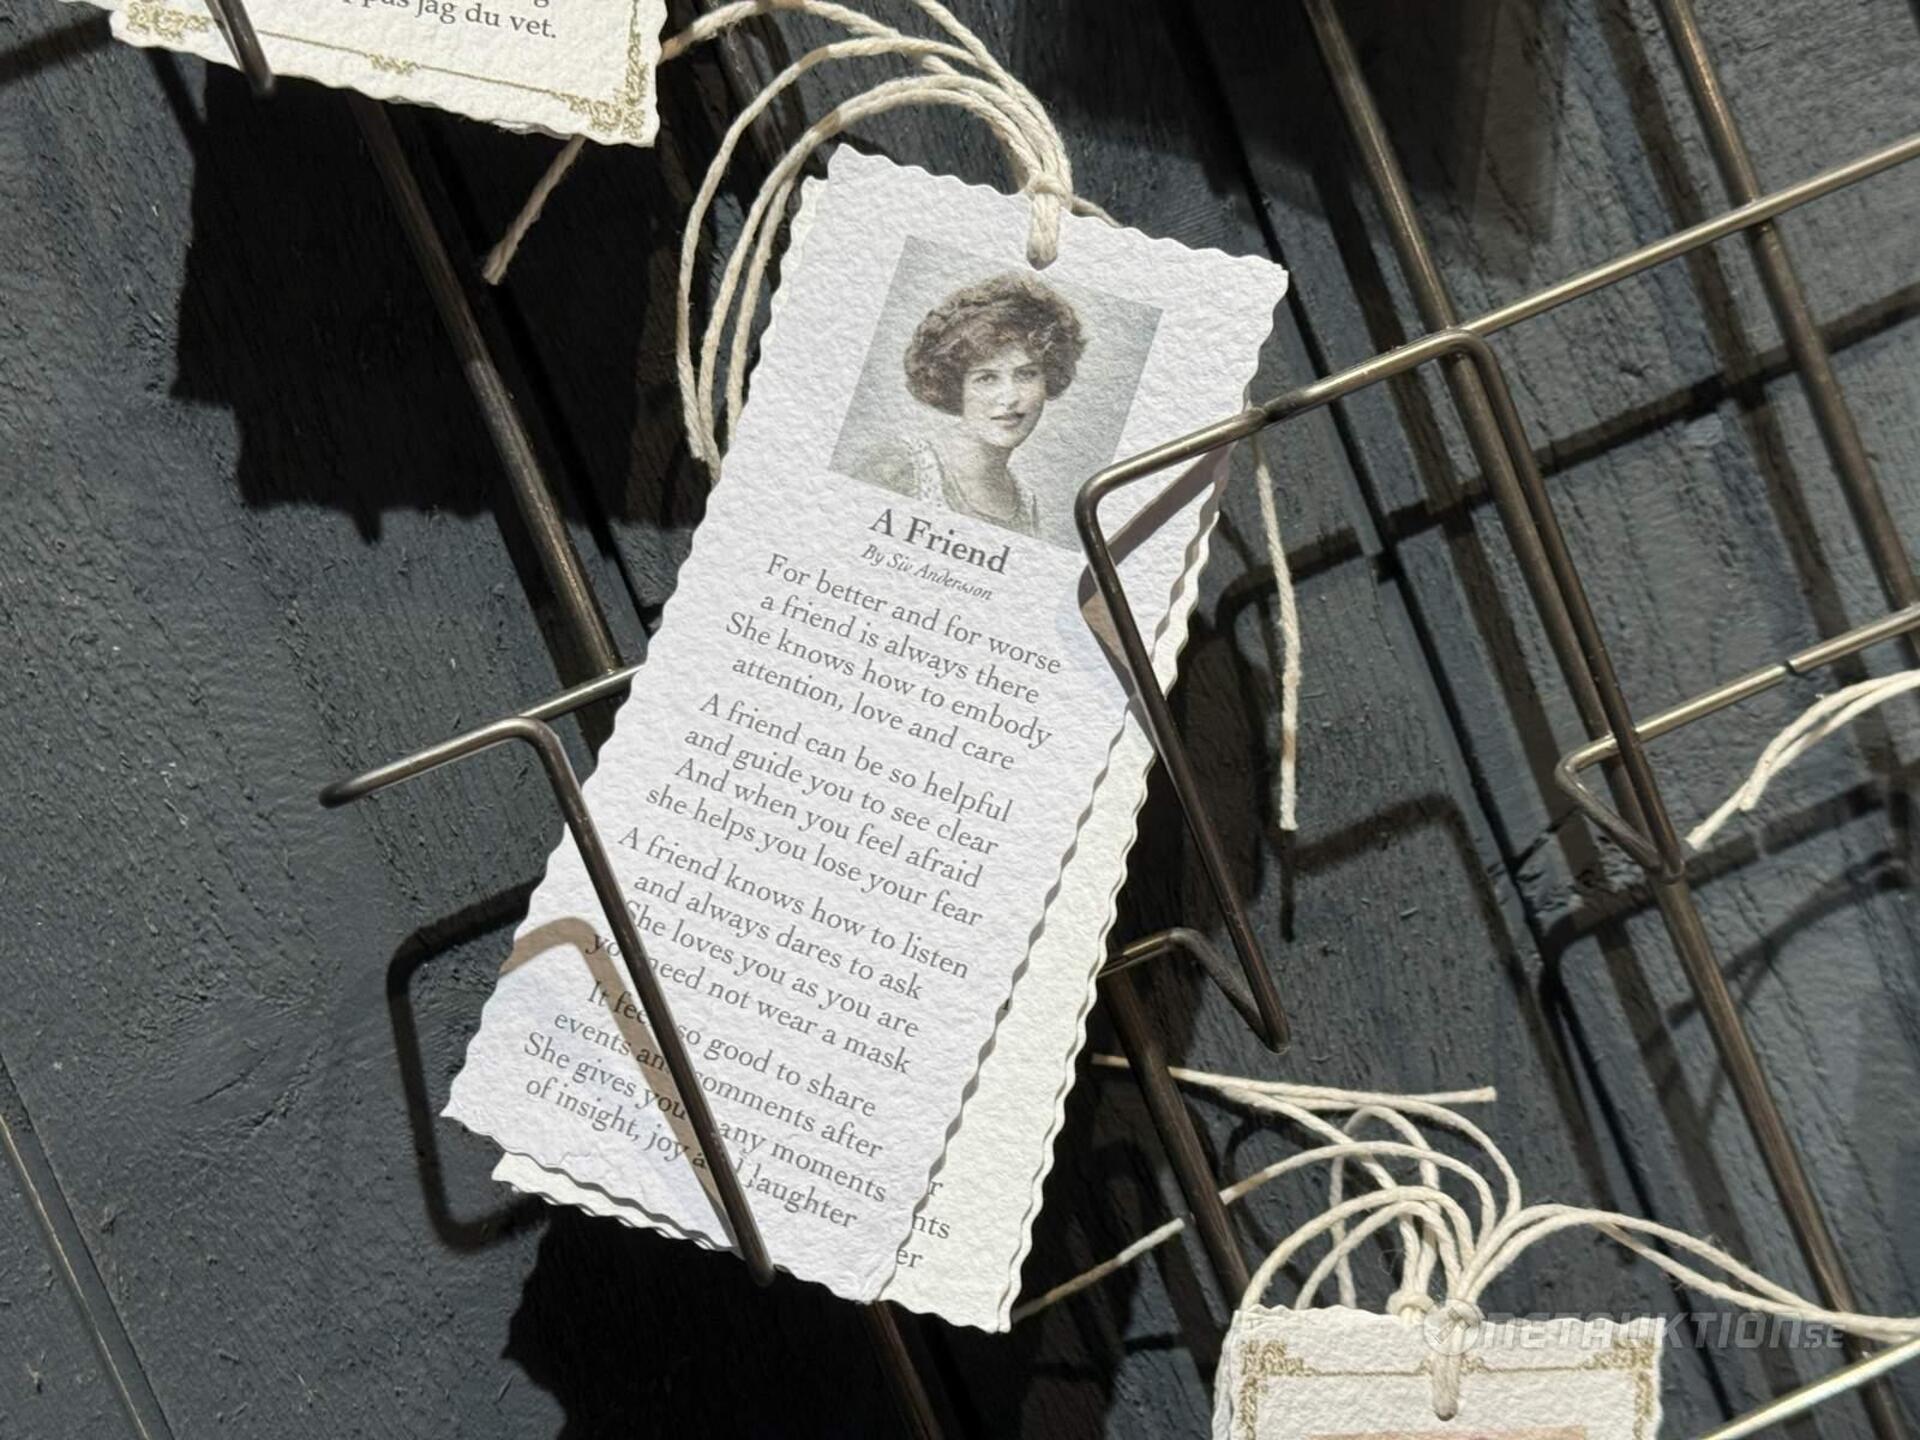 pås jag du vet.
A Friend
By Siv Andersson
For better and for worse
a friend is always there
She knows how to embody
attention, love and care
A friend can be so helpful
and guide you to see clear
And when you feel afraid
she helps you lose your fear
A friend knows how to listen
and always dares to ask
She loves you as you are
you need not wear a mask
It feels so good to share
events and comments after
She gives you many moments
of insight, joy and laughter
r
nts
er
METAUKTION.SE